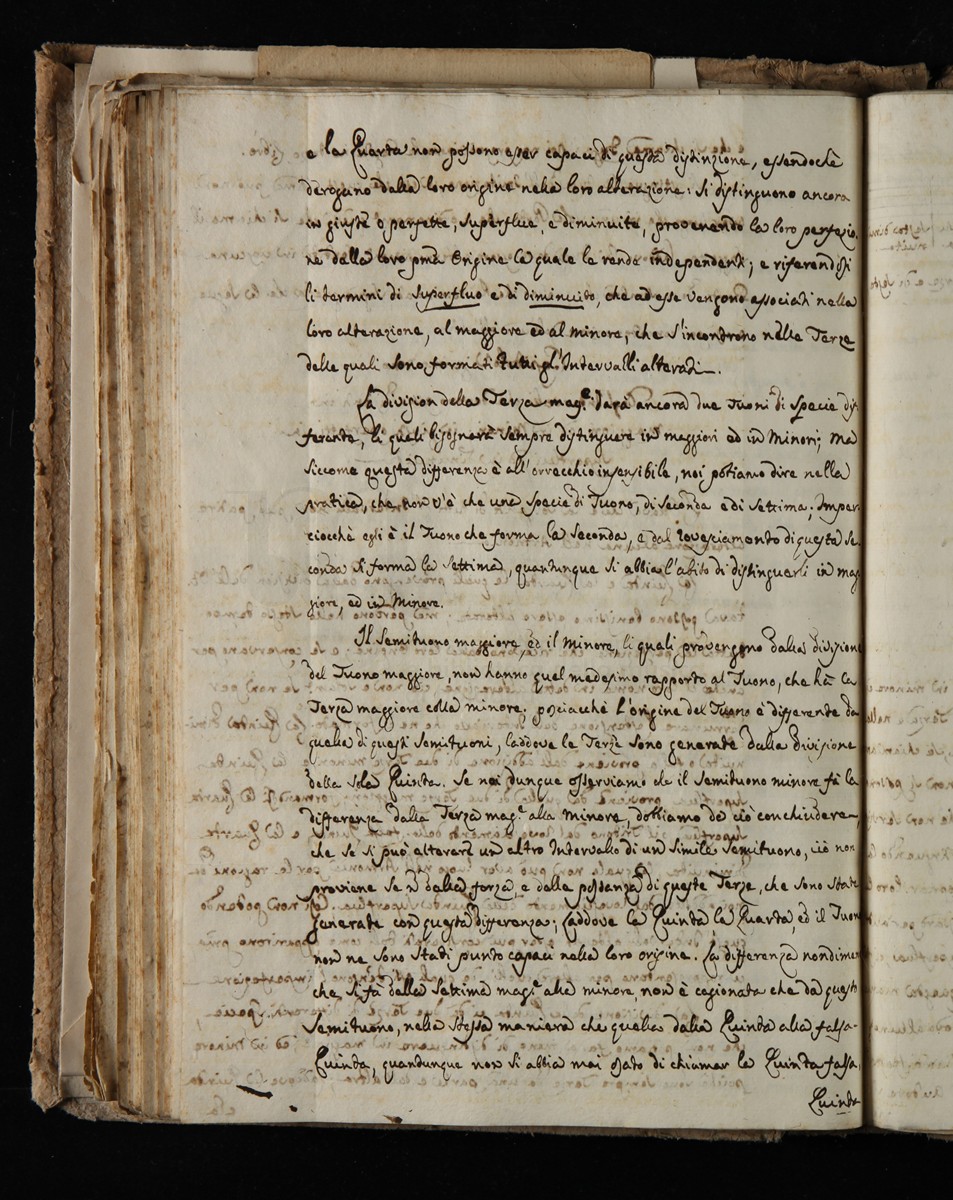 e la Quarta non possono esser capaci di questa distinzione, essendochè
derogano dalla loro origine nella loro alterazione: Si distinguono ancora
in giuste o perfette, superflue, e diminuite, provenendo la loro perfezio
ne dalla loro pma Origine la quale le rende independenti; e riferendosi
li termini di Superfluo e di diminuito, che ad esse vengono associati nella
loro alterazione, al maggiore ed al minore, che s'incontrono nelle Terze
delle quali sono formati tutti gl'Intervalli alterati.
La division della Terza mag.e darà ancora due Tuoni di specie dif
ferente, li quali bisognerà sempre distinguere in maggiori ed in Minori; Ma
siccome questa differenza è all'orrecchio insensibile, noi potiamo dire nella
pratica, che non v'è che una specie di Tuono, di seconda e di settima. Imper
ciocchè egli è il Tuono che forma la seconda, e dal rovesciamento di questa se
conda si forma la settima, quantunque si abbia l'usito di distinguerli in mag
giore, ed in Minore.
Il Semituono maggiore, ed il Minore, li quali provengono dalla divizion
del Tuono maggiore, non hanno quel medesimo rapporto al Tuono, che ha la
Terza maggiore colla minore; posciacchè l'origine del Tuono è differente da
quella di questi semituoni, laddove le Terze sono generate dalla divisione
della sola Quinta. Se noi dunque osserviamo che il semituono minore fà la
differenza dalla Terza mag.e alla Minore, dobbiamo da ciò conchiudere,
che se si può alterare un altro Intervallo di un simile semituono, ciò non
proviene se ñ dalla forza, e dalla possanza di queste Terze, che sono state
generate con questa differenza; laddove la Quinta la Quarta, ed il Tuon
non ne sono stati punto capaci nella loro origine. La differenza nondime
che si fà dalla settima mag.e alla minore, non è cagionata che da questo
Semituono, nella stessa maniera che quella dalla Quinta alla falsa-
Quinta, quantunque non si abbia mai osato di chiamar la Quinta falsa,
Quinta